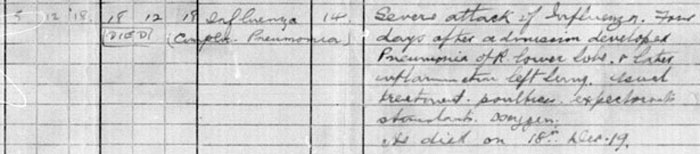 5 12 '18. 18 12 18 Influenza 14. Severe attack of Influenza. Four
(DIED) (Compla. Pneumonia) days after admission developed
Pneumonia of R. lower lobe. & later
inflammation left lung. usual
treatment. poultices. expectorants
stimulants. Oxygen.
He died on 18th Dec. 19.